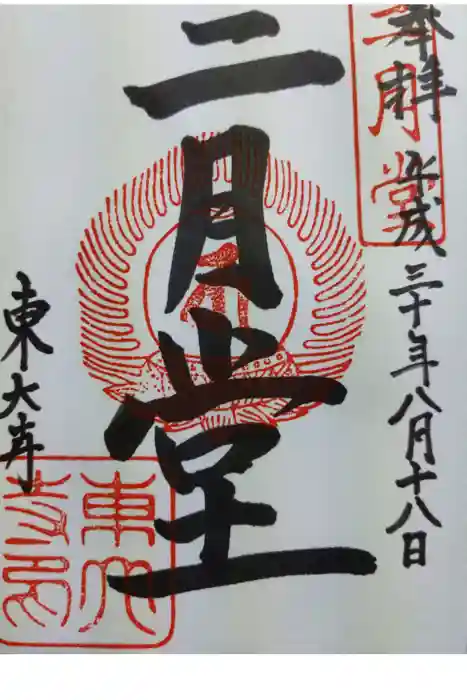 奉拝 平成三十年八月十八日
二月堂
二月堂
東大寺